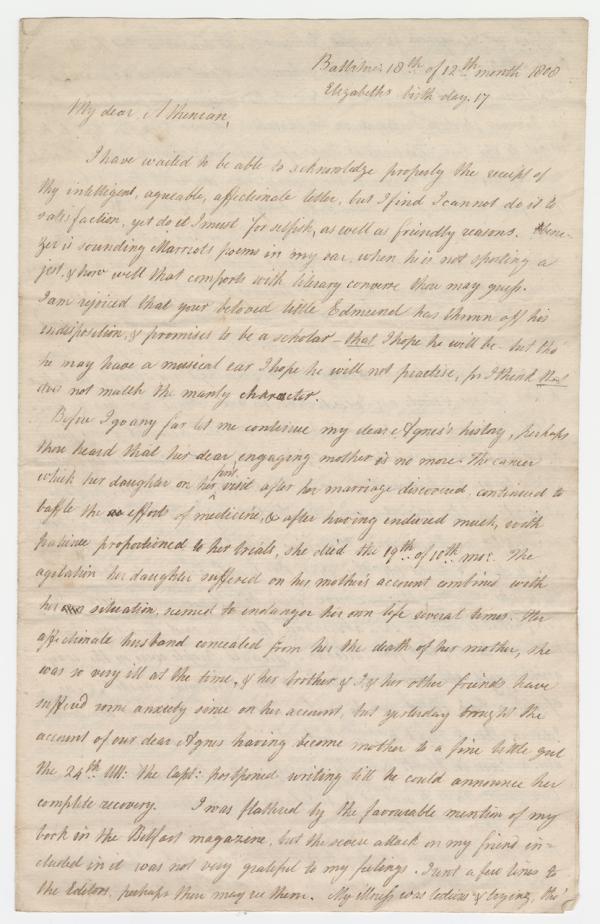 Ballitore 18th of 12th month 1808
Elizabeth's birth day. 17
My dear Athenian,
I have waited to be able to acknowledge properly the receipt of
thy intelligent, agreable, affectionate letter, but I find I cannot do it to
satisfaction, yet do it I must for selfish, as well as friendly reasons. Ebene-
zer is sounding Marriots poems in my ear, when he is not sporting a
jest, & how well that comports with literary converse thou may guess.
I am rejoiced that your beloved little Edmund has thrown off his
indisposition, & promises to be a scholar – that I hope he will be – but tho'
he may have a musical ear I hope he will not practise, for I think that
does not match the manly character.
Before I go any far let me continue my dear Agnes's history, perhaps
thou heard that her dear engaging mother is no more. The cancer
which her daughter on her first visit after her marriage discovered, continued to
baffle the effort of medicine, & after having endured much, with
patience proportioned to her trials, she died the 19th of 10th mo: The
agitation her daughter suffered on her mother's account combined with
her situation, seemed to endanger her own life several times. Her
affectionate husband concealed from her the death of her mother, she
was so very ill at the time, & her brother & I & her other friends have
suffered some anxiety since on her account, but yesterday brought the
account of our dear Agnes having become mother to a fine little girl
the 24th Ult: the Capt: postponed writing till he could announce her
complete recovery. I was flattered by the favourable mention of my
book in the Belfast magazine, but the severe attack on my friend in-
cluded in it was not very grateful to my feelings. I sent a few lines to
the Editors, perhaps thou may see them. My illness was tedious & trying, tho'